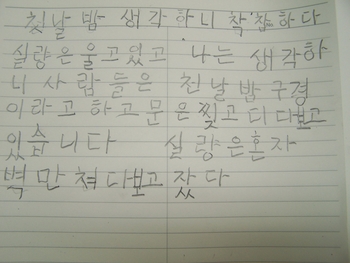 첫날밤 생각하니 착찹하다
실랑은 울고 있고 나는 생각하
니 사람들은 친날밤 구경
이라고 하고 문은 찢고 디다보고
있습니다 실랑은 혼자
벽만 쳐다보고 잤다